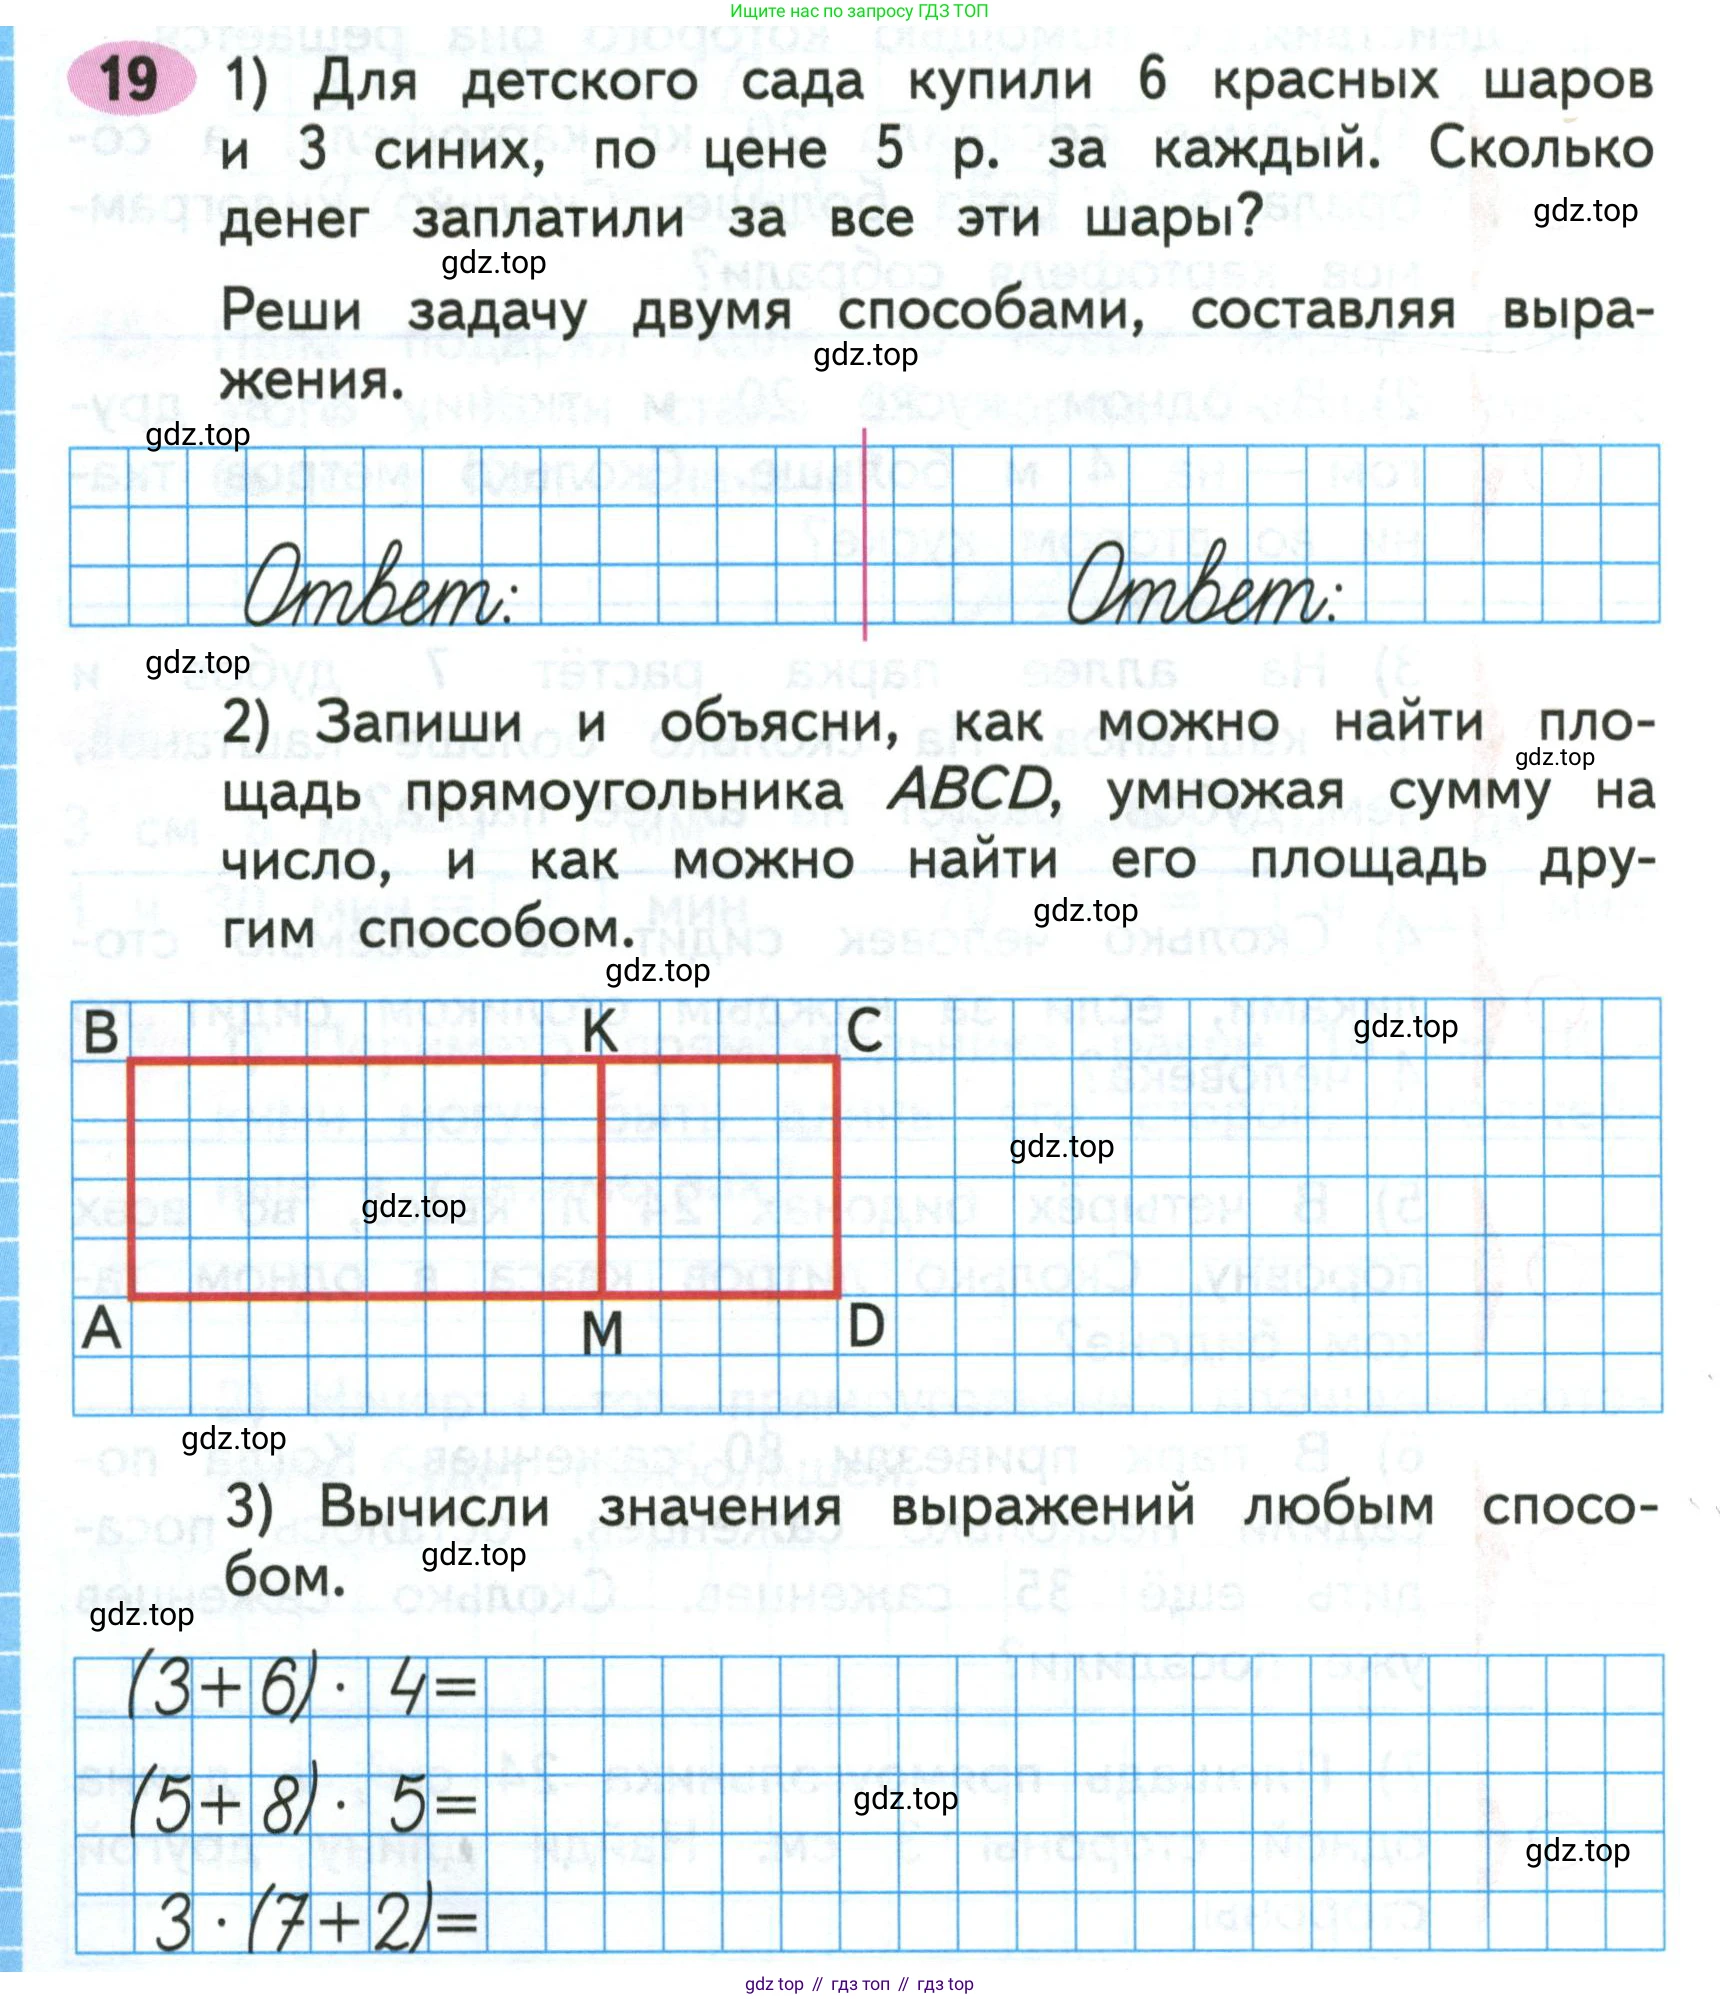 Ищите нас по запросу ГДЗ ТОП
19 1) Для детского сада купили 6 красных шаров
и 3 синих, по цене 5 р. за каждый. Сколько
денег заплатили за все эти шары?
gdz.top
gdz.top
Реши задачу двумя способами, составляя выра-
gdz.top
жения.
gdz.top
Ответ: Ответ:
gdz.top
2) Запиши и объясни, как можно найти пло-
gdz.top
щадь прямоугольника ABCD, умножая сумму на
число, и как можно найти его площадь дру-
gdz.top
гим способом.
gdz.top
B K C
gdz.top
gdz.top
gdz.top
A M D
gdz.top
3) Вычисли значения выражений любым спосо-
gdz.top
бом.
gdz.top
(3+6) · 4=
(5+8) · 5=
gdz.top
gdz.top
3 · (7+2)=
gdz top // гдз топ // гдз top